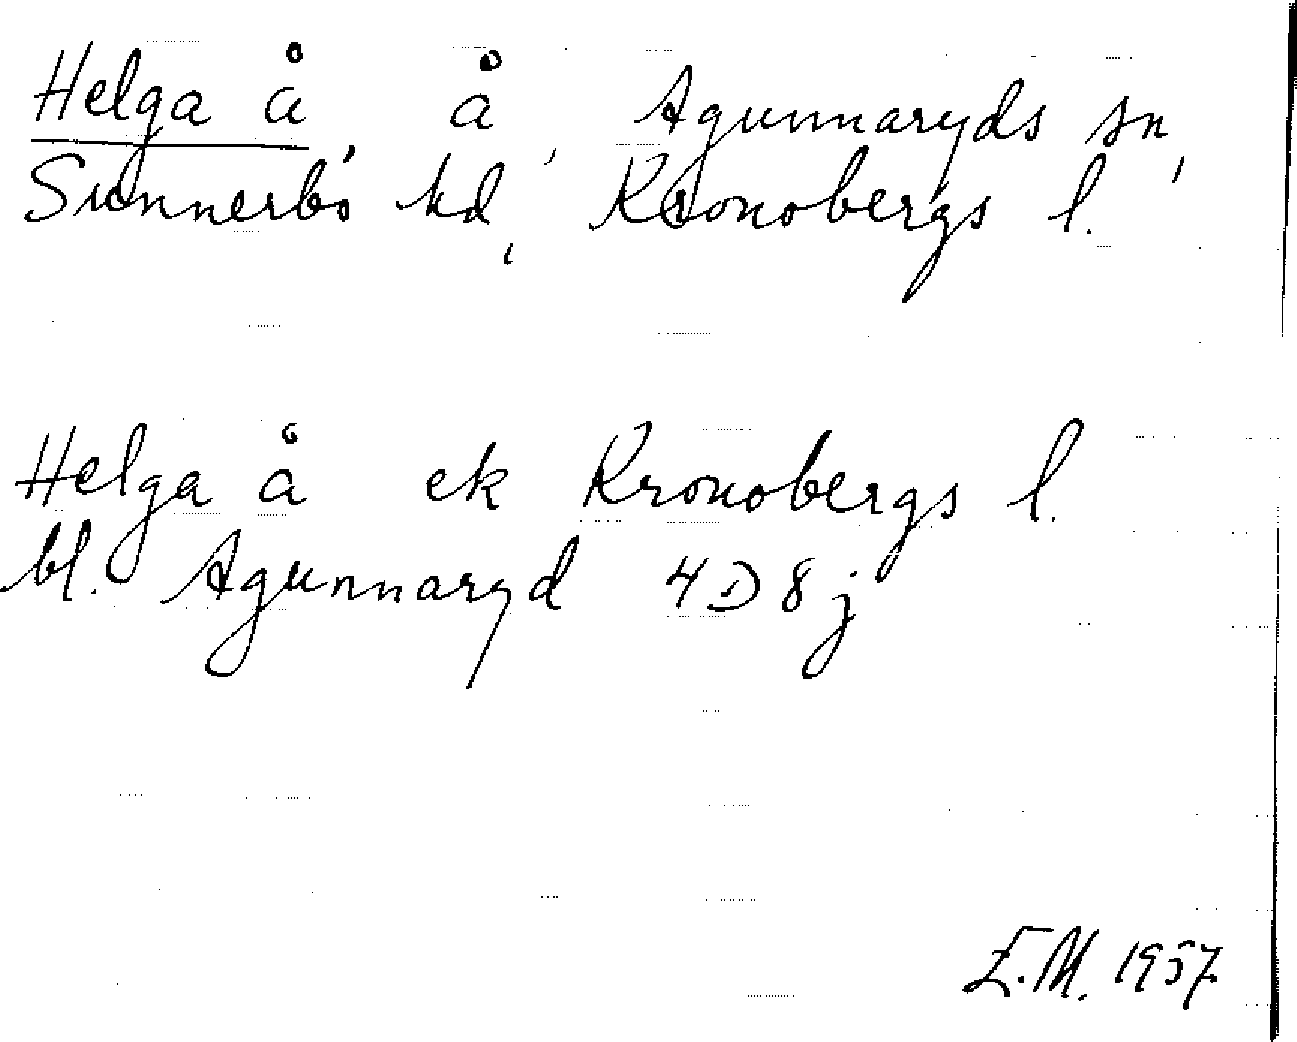 Helga å å, Agunnaryds sn,
Sunnerbo hd, Kronobergs l.
Helga å ek Kronobergs l.
bl. Agunnaryd 4D8j
E.M. 1957